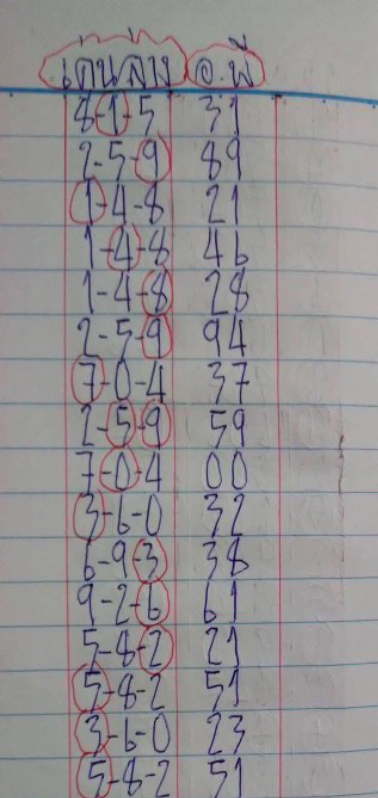 เด่นล่าง อ.พี
8-1-5 31
2-5-9 89
1-4-8 21
1-4-8 46
1-4-8 28
2-5-9 94
7-0-4 37
2-5-9 59
7-0-4 00
3-6-0 32
6-9-3 38
9-2-6 61
5-8-2 21
5-8-2 51
3-6-0 23
5-8-2 51